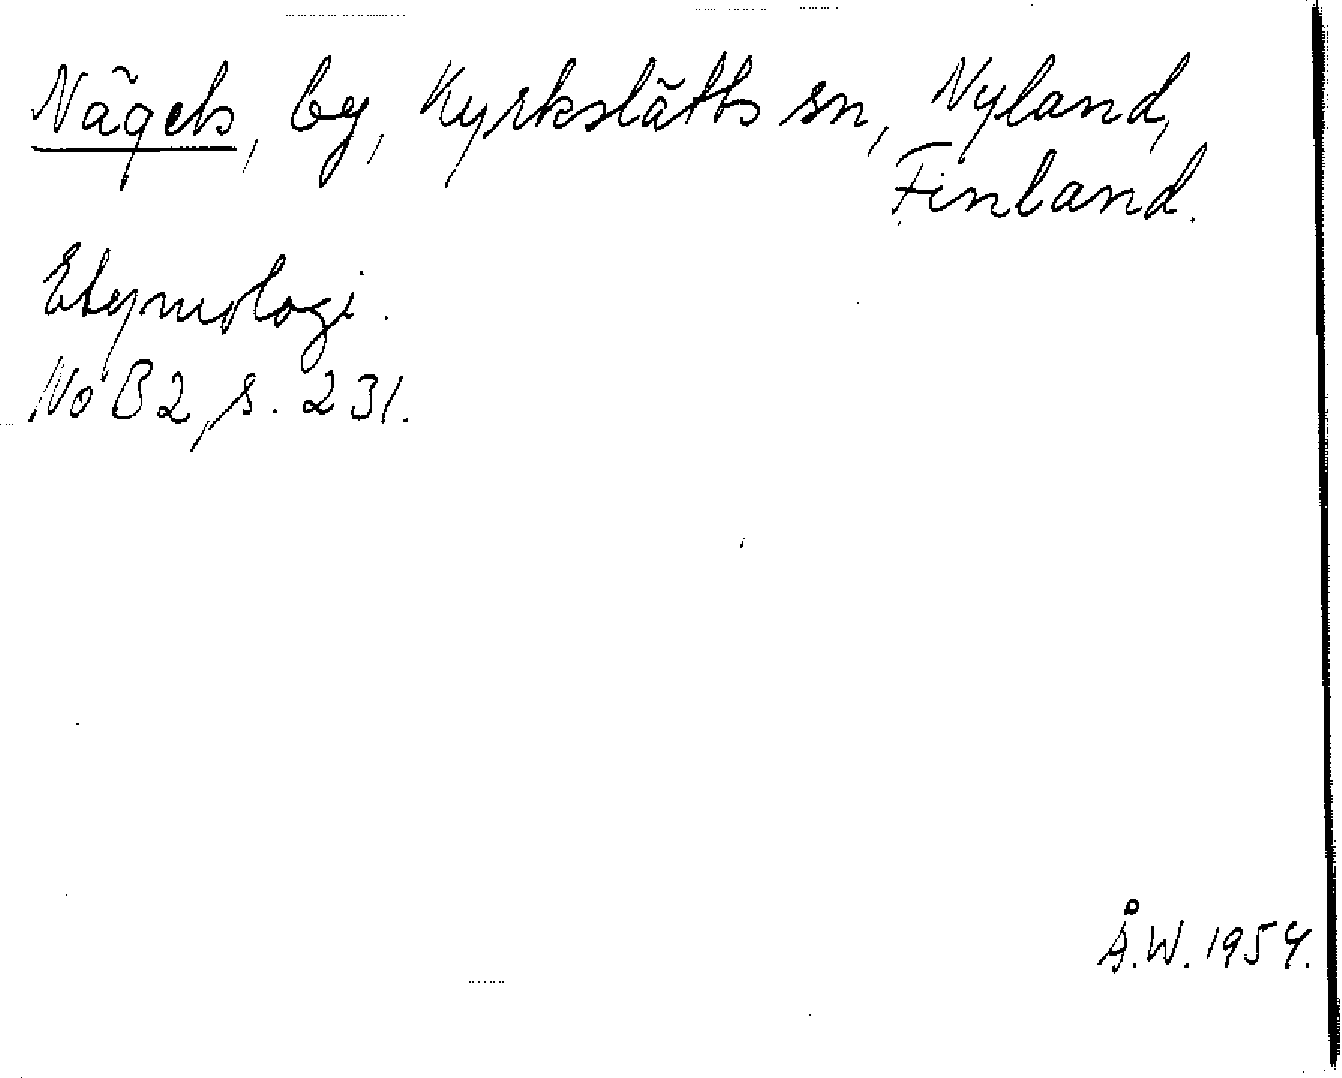 Nägels, by, Kyrkslätts sn, Nyland,
Finland.
Etymologi.
NoB 2, s. 231.
Å.W. 1954.